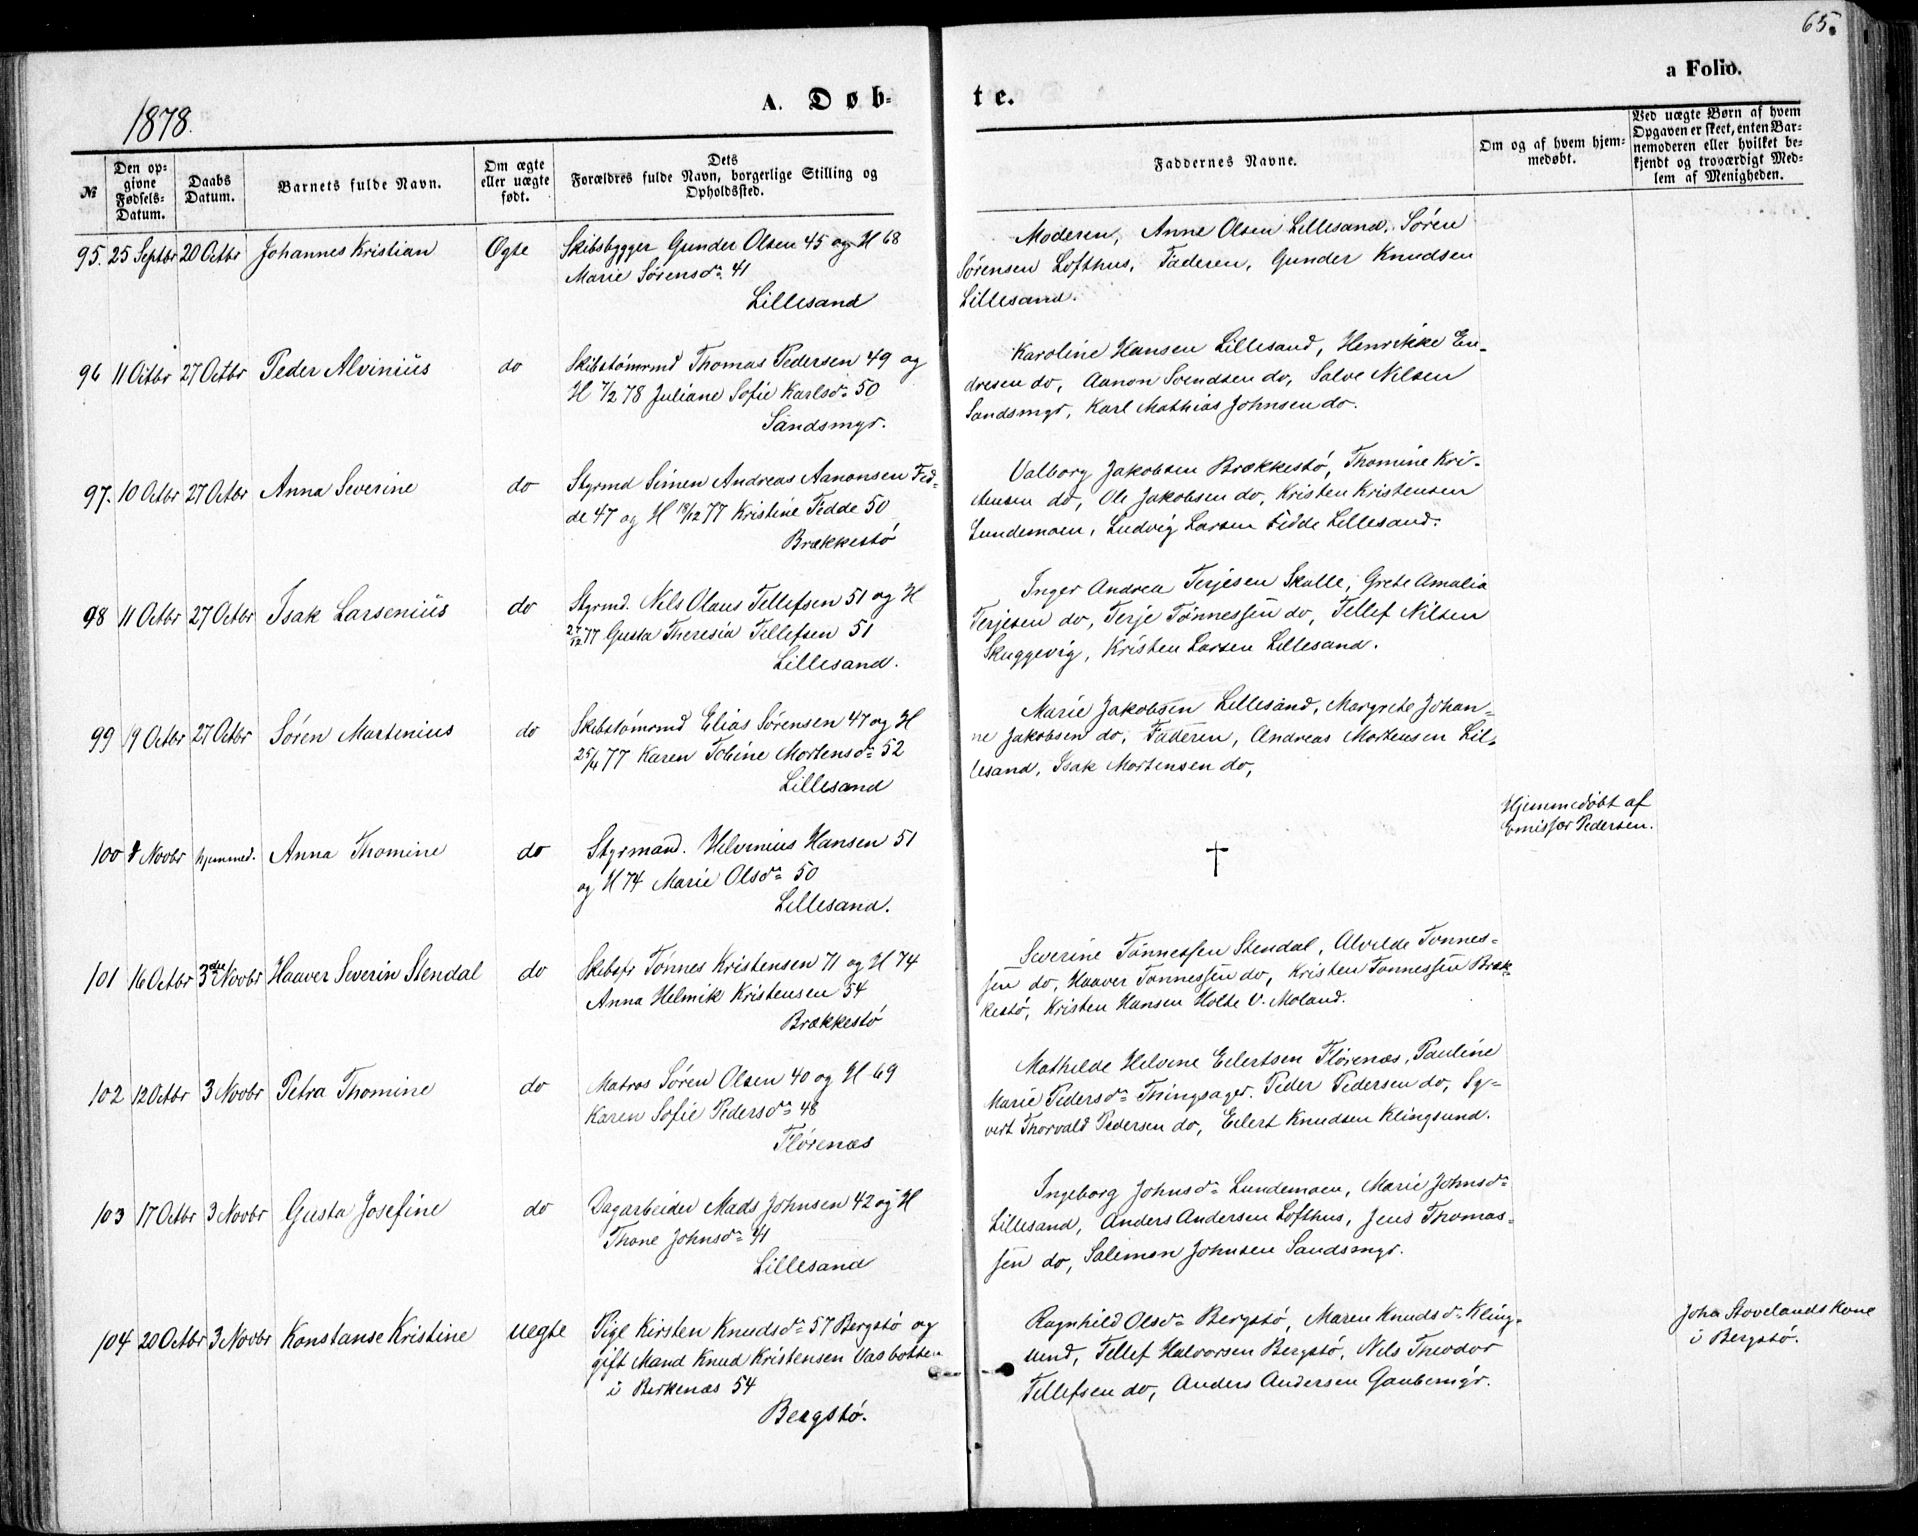 65.
a Folio.
A. Døb-
te.
1878.
№
Den op-
givne
Fødsels-
Datum.
Daabs
Datum.
Barnets fulde Navn.
Om ægte
eller uægte
født.
Dets
Forældres fulde Navn, borgerlige Stilling og
Opholdssted.
Faddernes Navne.
Om og af hvem hjem-
medøbt.
Ved uægte Børn af hvem
Opgaven er skeet, enten Bar-
nemoderen eller hvilket be-
kjendt og troværdigt Med-
lem af Menigheden.
95. 25 Septbr 20 Octbr Johannes Kristian Ægte Skibsbygger Gunder Olsen 45 og H 68
Marie Sørensd. 41
Lillesand
Moderen, Anne Olsen Lillesand, Søren
Sørensen Lofthus, Faderen, Gunder Knudsen
Lillesand.
96 11 Octbr 27 Octbr Peder Alvinius do Skibstømrmd Thomas Pedersen 49 og
H 7/2 78 Juliane Sofie Karlsd. 50
Sandsmyr.
Karoline Hansen Lillesand, Henrikke En-
dresen do, Aanon Svendsen do, Salve Nilsen
Sandsmyr, Karl Mathias Johnsen do.
97. 10 Octbr 27 Octbr Anna Severine do Styrmd Simen Andreas Aanonsen Fid-
de 47 og H 18/12 77 Kristine Fidde 50
Brækkestø
Valborg Jakobsen Brækkestø, Thomine Kri-
stensen do, Ole Jakobsen do, Kristen Kristensen
Lundemoen, Ludvig Larsen Fidde Lillesand.
98 11 Octbr 27 Octbr Isak Larsenius do Styrmd. Nils Olaus Tellefsen 51 og H
27/12 77 Gusta Theresia Tellefsen 51
Lillesand.
Inger Andrea Terjesen Skalle, Grete Amalia
Terjesen do, Terje Tønnessen do, Tellef Nilsen
Skuggevig, Kristen Larsen Lillesand.
99 19 Octbr 27 Octbr Søren Martinius do Skibstømrmd Elias Sørensen 47 og H
25/4 77 Karen Tobine Mortensd. 52
Lillesand
Marie Jakobsen Lillesand, Margrete Johan-
ne Jakobsen do, Faderen, Andreas Mortensen Lil-
lesand, Isak Mortensen do,
100 8 Novbr hjemmed. Anna Thomine do Styrmand. Helvinius Hansen 51
og H 74 Marie Olsd. 50
Lillesand.
†
Hjemmedøbt af
Emissær Pedersen.
101 16 Octbr 3die Novbr Haaver Severin Stendal do Skibsfr Tønnes Kristensen 71 og H 74
Anna Helmik Kristensen 54
Brækkestø
Severine Tønnessen Stendal, Alvilde Tønnes-
sen do, Haaver Tønnessen do, Kristen Tønnessen Bræk-
kestø, Kristen Hansen Holte V. Moland.
102 12 Octbr 3 Novbr Petra Thomine do Matros Søren Olsen 40 og H 69
Karen Sofie Pedersd. 48
Flørenæs
Mathilde Helvine Eilertsen Flørenæs, Pauline
Marie Pedersd. Thingsager, Peder Pedersen do, Sy-
vert Thorvald Pedersen do, Eilert Knudsen Klingsund.
103 17 Octbr 3 Novbr Gusta Josefine do Dagarbeider Mads Johnsen 42 og H
Thone Johnsd. 41
Lillesand
Ingeborg Johnsd. Lundemoen, Marie Johnsd.
Lillesand, Anders Andersen Lofthus, Jens Thomas-
sen do, Salemon Johnsen Sandsmyr.
104 20 Octbr 3 Novbr Konstanse Kristine Uegte Pige Kirsten Knudsd. 57 Bergstø og
gift Mand Knud Kristensen Vasbotten
i Birkenæs 54
Bergstø.
Ragnhild Olsd. Bergstø, Maren Knudsd. Kling-
sund, Tellef Halvorsen Bergstø, Nils Theodor
Tellefsen do, Anders Andersen Gaubemyr.
Joha Stovelands Kone
i Bergstø.